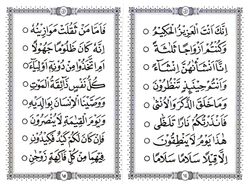 إِنَّكَ أَنْتَ الْعَزِيزُ الْحَكِيمُ
وَكُنْتُمْ أَزْوَاجًا ثَلٰثَةً
إِنَّا أَنْشَأْنٰهُنَّ إِنْشَاءً
وَأَنْتُمْ حِينَئِذٍ تَنْظُرُونَ
وَمَا خَلَقَ الذَّكَرَ وَالْأُنْثٰى
فَأَنْذَرْتُكُمْ نَارًا تَلَظّٰى
هٰذَا يَوْمُ لَا يَنْطِقُونَ
إِلَّا قِيلًا سَلَامًا سَلَامًا
فَأَمَّا مَنْ ثَقُلَتْ مَوَازِينُهُ
إِنَّهُ كَانَ ظَلُومًا جَهُولًا
أَمِ اتَّخَذُوا مِنْ دُونِهِ أَوْلِيَاءَ
كُلُّ نَفْسٍ ذَائِقَةُ الْمَوْتِ
وَوَصَّيْنَا الْإِنْسَانَ بِوَالِدَيْهِ
وَيَوْمَ الْقِيٰمَةِ لَا يُنْصَرُونَ
فَإِنْ كَانَ لَكُمْ كَيْدٌ فَكِيدُونِ
فِيهِمَا مِنْ كُلِّ فَاكِهَةٍ زَوْجٰنِ